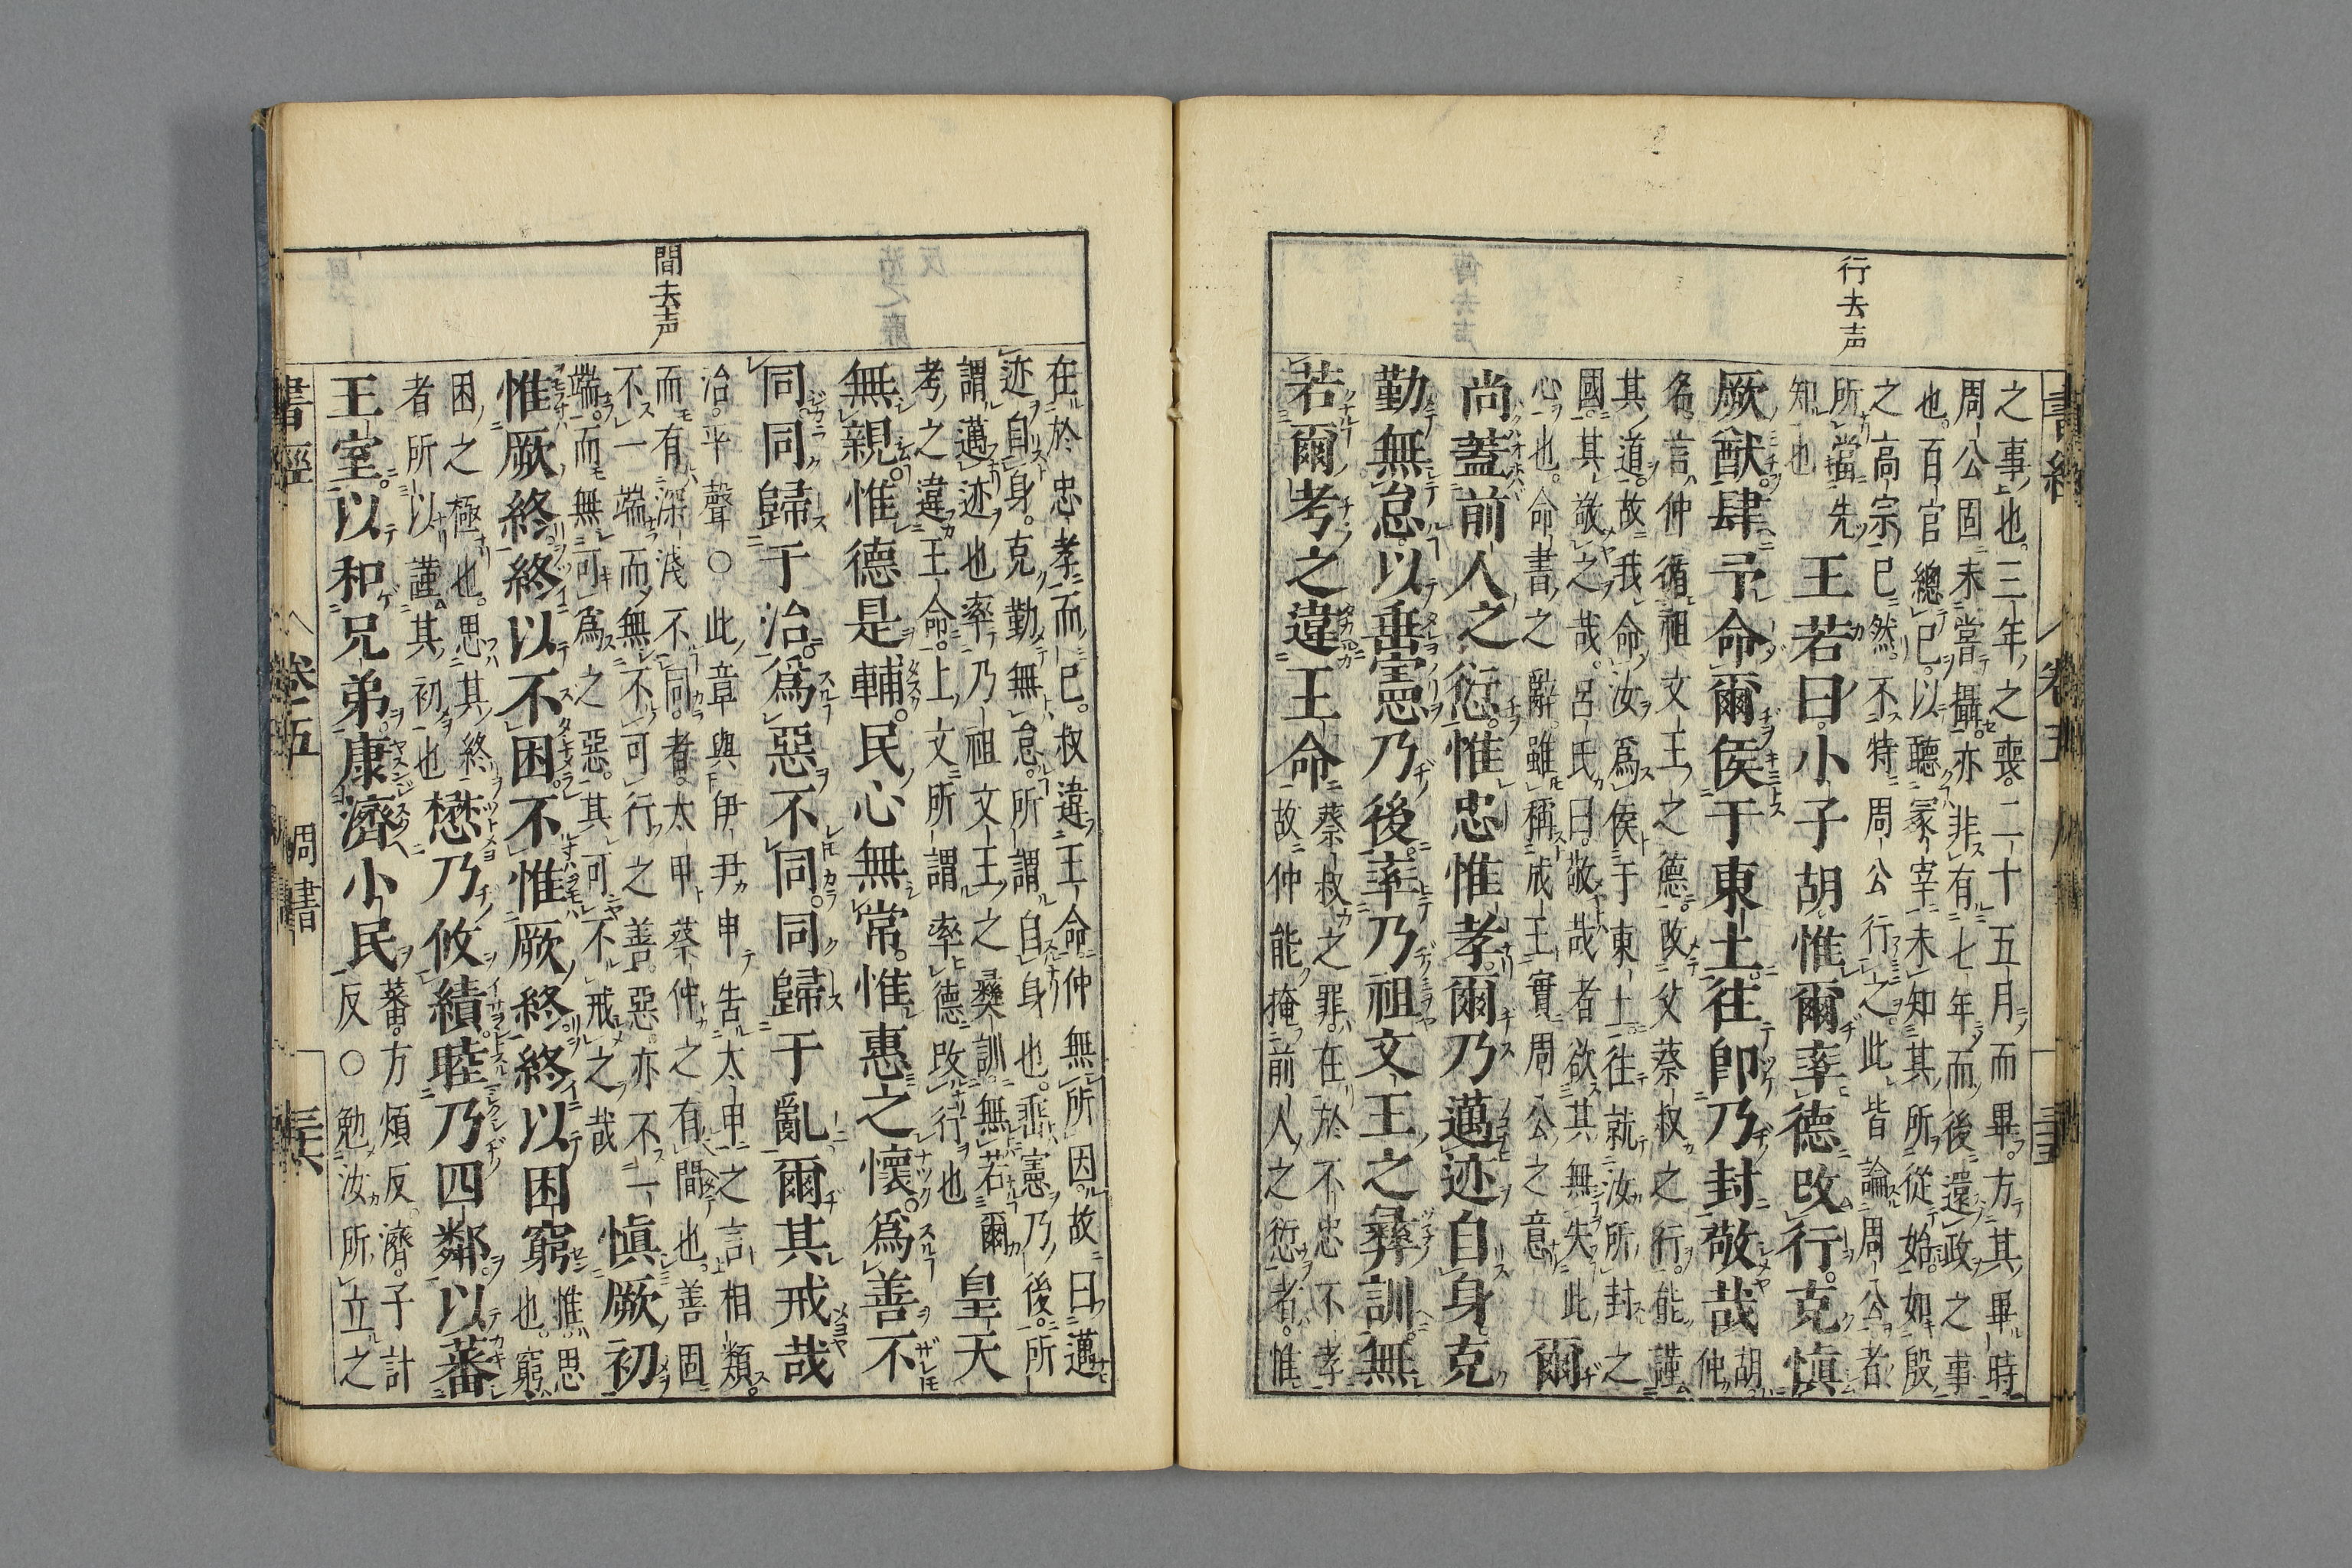 行去声
之事也。三年之喪。二十五月而畢。方其畢時
周公固未嘗攝。亦非有七年而後還政之事
也。百官總已。以聽冢宰。未知其所從始。如殷
之高宗已然。不特周公行之。此皆論周公者
所當先
知也
王若曰。小子胡惟爾率德改行。克慎
厥猷。肆予命爾侯于東土。往卽乃封敬哉
胡
仲
名。言仲循祖文王之德。改父蔡叔之行。能謹
其道。故我命汝爲侯于東土。往就汝所封之
國。其敬之哉。呂氏曰。敬哉者欲其無失此
心也。命書之辭。雖稱成王。實周公之意
爾
尚蓋前人之愆。惟忠惟孝。爾乃邁迹自身。克
勤無怠。以垂憲乃後。率乃祖文王之彝訓。無
若爾考之違王命
蔡叔之罪。在於不忠不孝
故仲能掩前人之愆者。惟
間去声
在於忠孝而已。叔違王命。仲無所因。故曰邁
迹自身。克勤無怠。所謂自身也。垂憲乃後。所
謂邁迹也。率乃祖文王之彝訓。無若爾
考之違王命。上文所謂率德改行也
皇天
無親。惟德是輔。民心無常。惟惠之懷。爲善不
同。同歸于治。爲惡不同。同歸于亂。爾其戒哉
治。平聲○此章與伊尹申告太甲之言相類。
而有深淺不同者。太甲蔡仲之有間也。善固
不一端。而無不可行之善。惡亦不一
端。而無可爲之惡。其可不戒之哉
愼厥初
惟厥終。終以不困。不惟厥終。終以困窮
惟思
也。窮
困之極也。思其終
者所以謹其初也
懋乃攸績。睦乃四鄰。以蕃
王室。以和兄弟。康濟小民
蕃。方煩反。濟。子計
反○勉汝所立之
書經 卷五 周書